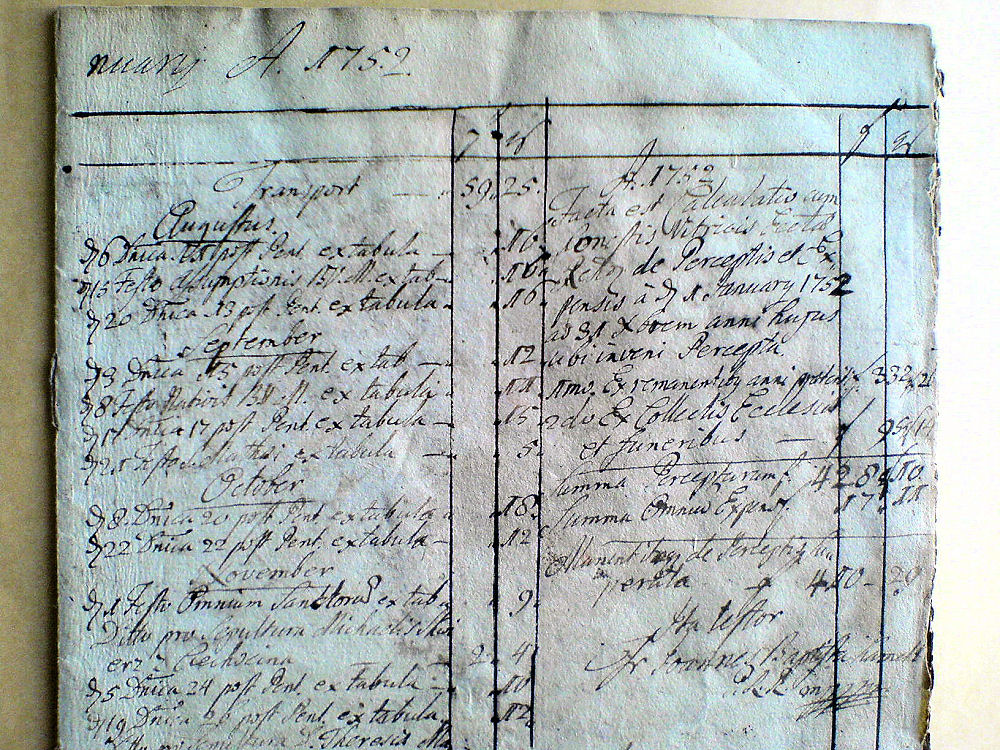 nuarij A. 1752
f xr
Transport 59. 25.
Augustus
d 6 Dnica post Pent. ex tabula 10
d 15 Festo Assumptionis B.V.M. ex tab. 10
d 20 Dnica 13 post Pent. ex tabula 16
September
d 3 Dnica 15 post Pent. ex tab. 12
d 8 Festo Nativit. B.V.M. ex tabula 11
d 17 Dnica 17 post Pent. ex tabula 15
d 21 Festo Mathaei ex tabula 5
October
d 8. Dnica 20 post Pent. ex tabula 18
d 22 Dnica 22 post Pent. ex tabula 12
November
d 1 Festo Omnium Sanctorum ex tab 9.
Ditto pro Sepultura Michaelis
Ciechocina 2 4
d 5 Dnica 24 post Pent. ex tabula 10
d 19 Dnica 26 post Pent. ex tabula 12
Sepultura D. Theresis
f xr
A. 1752
Facta est Calculatio cum
Vitricis
de Perceptis et Ex
pensis à d 1 January 1752
ad 31 Xbrem anni hujus
ubi inveni Percepta
1mo. Ex remanentibus anni 332
2do Ex Collectis Ecclesiae
et funeribus 95
Summa Perceptarum f. 428 10
Summa Omnium Expens. f. 17 11
Remanent itaque de Perceptis
perata f 410 - 29
Ita testor
Fr. Joannes Baptista